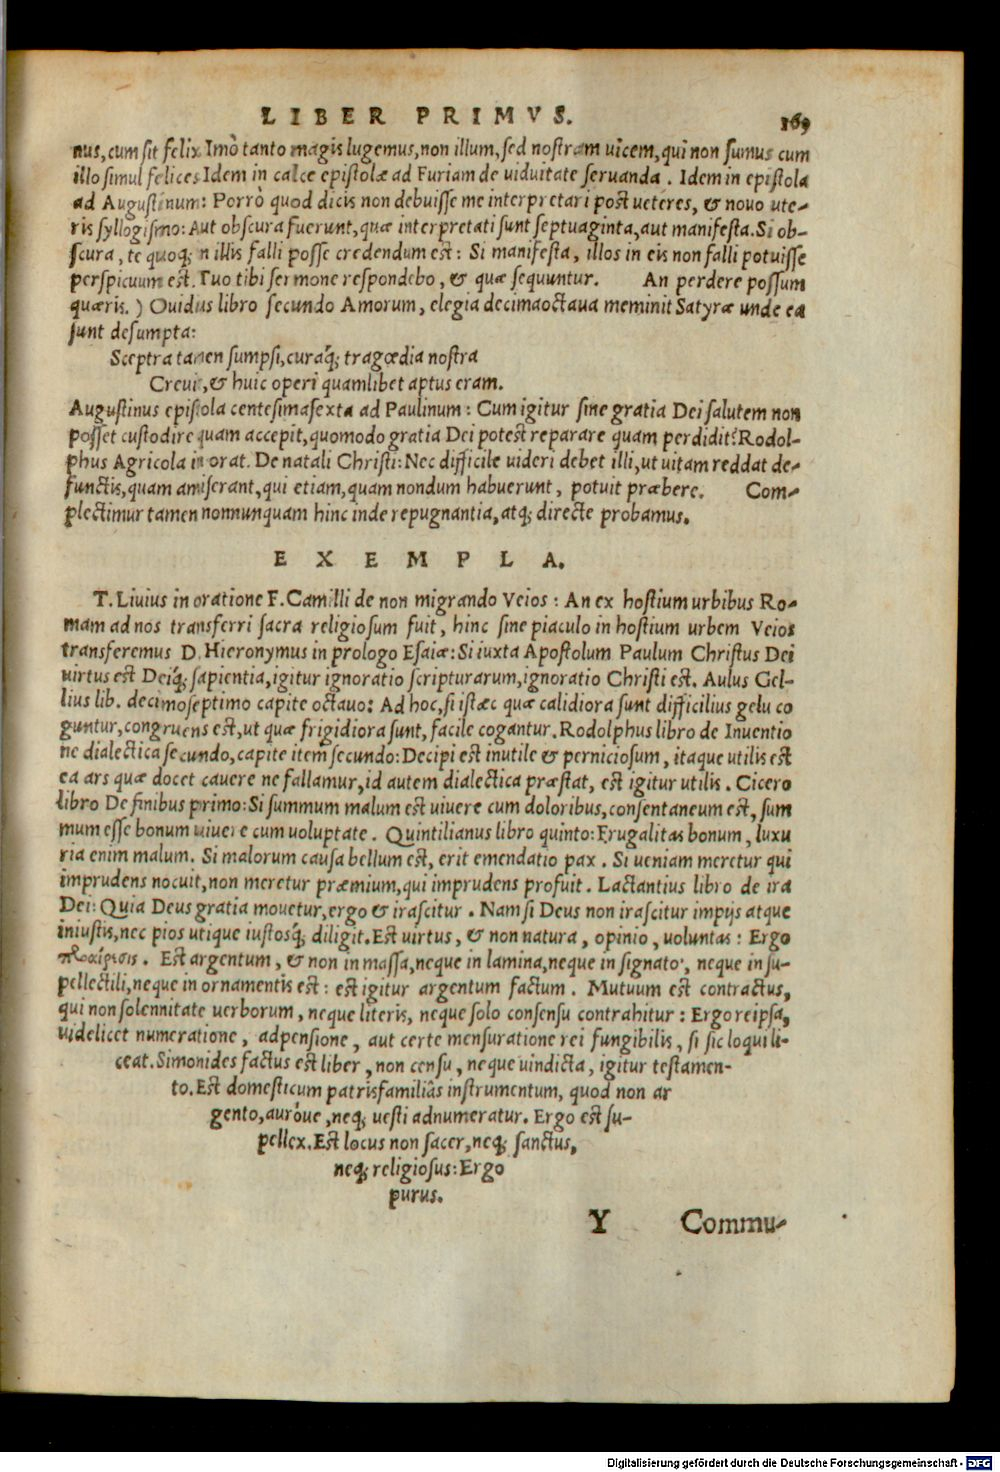 LIBER PRIMVS. 169
nus, cum sit felix. Imò tanto magis lugemus, non illum, sed nostram uicem, qui non sumus cum
illo simul felices. Idem in calce epistolæ ad Furiam de uiduitate seruanda. Idem in epistola
ad Augustinum: Porrò quod dicis non debuisse me interpretari post ueteres, & nouo ute-
ris syllogismo: Aut obscura fuerunt, quæ interpretati sunt septuaginta, aut manifesta. Si ob-
scura, te quoq; in illis falli posse credendum est: Si manifesta, illos in eis non falli potuisse
perspicuum est. Tuo tibi sermone respondebo, & quæ sequuntur. An perdere possum
quæris.) Ouidius libro secundo Amorum, elegia decimaoctaua meminit Satyræ unde ea
sunt desumpta:
Sceptra tamen sumpsi, curaq; tragœdia nostra
Creuit, & huic operi quamlibet aptus eram.
Augustinus epistola centesimasexta ad Paulinum: Cum igitur sine gratia Dei salutem non
posset custodire quam accepit, quomodo gratia Dei potest reparare quam perdidit? Rodol-
phus Agricola in orat. De natali Christi: Nec difficile uideri debet illi, ut uitam reddat de-
functis, quam amiserant, qui etiam, quam nondum habuerunt, potuit præbere. Com-
plectimur tamen nonnunquam hinc inde repugnantia, atq; directe probamus.
EXEMPLA.
T. Liuius in oratione F. Camilli de non migrando Veios: An ex hostium urbibus Ro-
mam ad nos transferri sacra religiosum fuit, hinc sine piaculo in hostium urbem Veios
transferemus D. Hieronymus in prologo Esaiæ: Si iuxta Apostolum Paulum Christus Dei
uirtus est Deiq́; sapientia, igitur ignoratio scripturarum, ignoratio Christi est. Aulus Gel-
lius lib. decimoseptimo capite octauo: Ad hoc, si istæc quæ calidiora sunt difficilius gelu co
guntur, congruens est, ut quæ frigidiora sunt, facile cogantur. Rodolphus libro de Inuentio
ne dialectica secundo, capite item secundo: Decipi est inutile & perniciosum, itaque utilis est
ea ars quæ docet cauere ne fallamur, id autem dialectica præstat, est igitur utilis. Cicero
libro De finibus primo: Si summum malum est uiuere cum doloribus, consentaneum est, sum
mum esse bonum uiuere cum uoluptate. Quintilianus libro quinto: Frugalitas bonum, luxu
ria enim malum. Si malorum causa bellum est, erit emendatio pax. Si ueniam meretur qui
imprudens nocuit, non meretur præmium, qui imprudens profuit. Lactantius libro de ira
Dei: Quia Deus gratia mouetur, ergo & irascitur. Nam si Deus non irascitur impijs atque
iniustis, nec pios utique iustosq́; diligit. Est uirtus, & non natura, opinio, uoluntas: Ergo
προαίρεσις. Est argentum, & non in massa, neque in lamina, neque in signato, neque in su-
pellectili, neque in ornamentis est: est igitur argentum factum. Mutuum est contractus,
qui non solennitate uerborum, neque literis, neque solo consensu contrahitur: Ergo reipsa,
uidelicet numeratione, adpensione, aut certe mensuratione rei fungibilis, si sic loqui li-
ceat. Simonides factus est liber, non censu, neque uindicta, igitur testamen-
to. Est domesticum patrisfamiliâs instrumentum, quod non ar
gento, auróue, neq; uesti adnumeratur. Ergo est su-
pellex. Est locus non sacer, neq; sanctus,
neq; religiosus: Ergo
purus.
Y Commu-
Digitalisierung gefördert durch die Deutsche Forschungsgemeinschaft - DFG